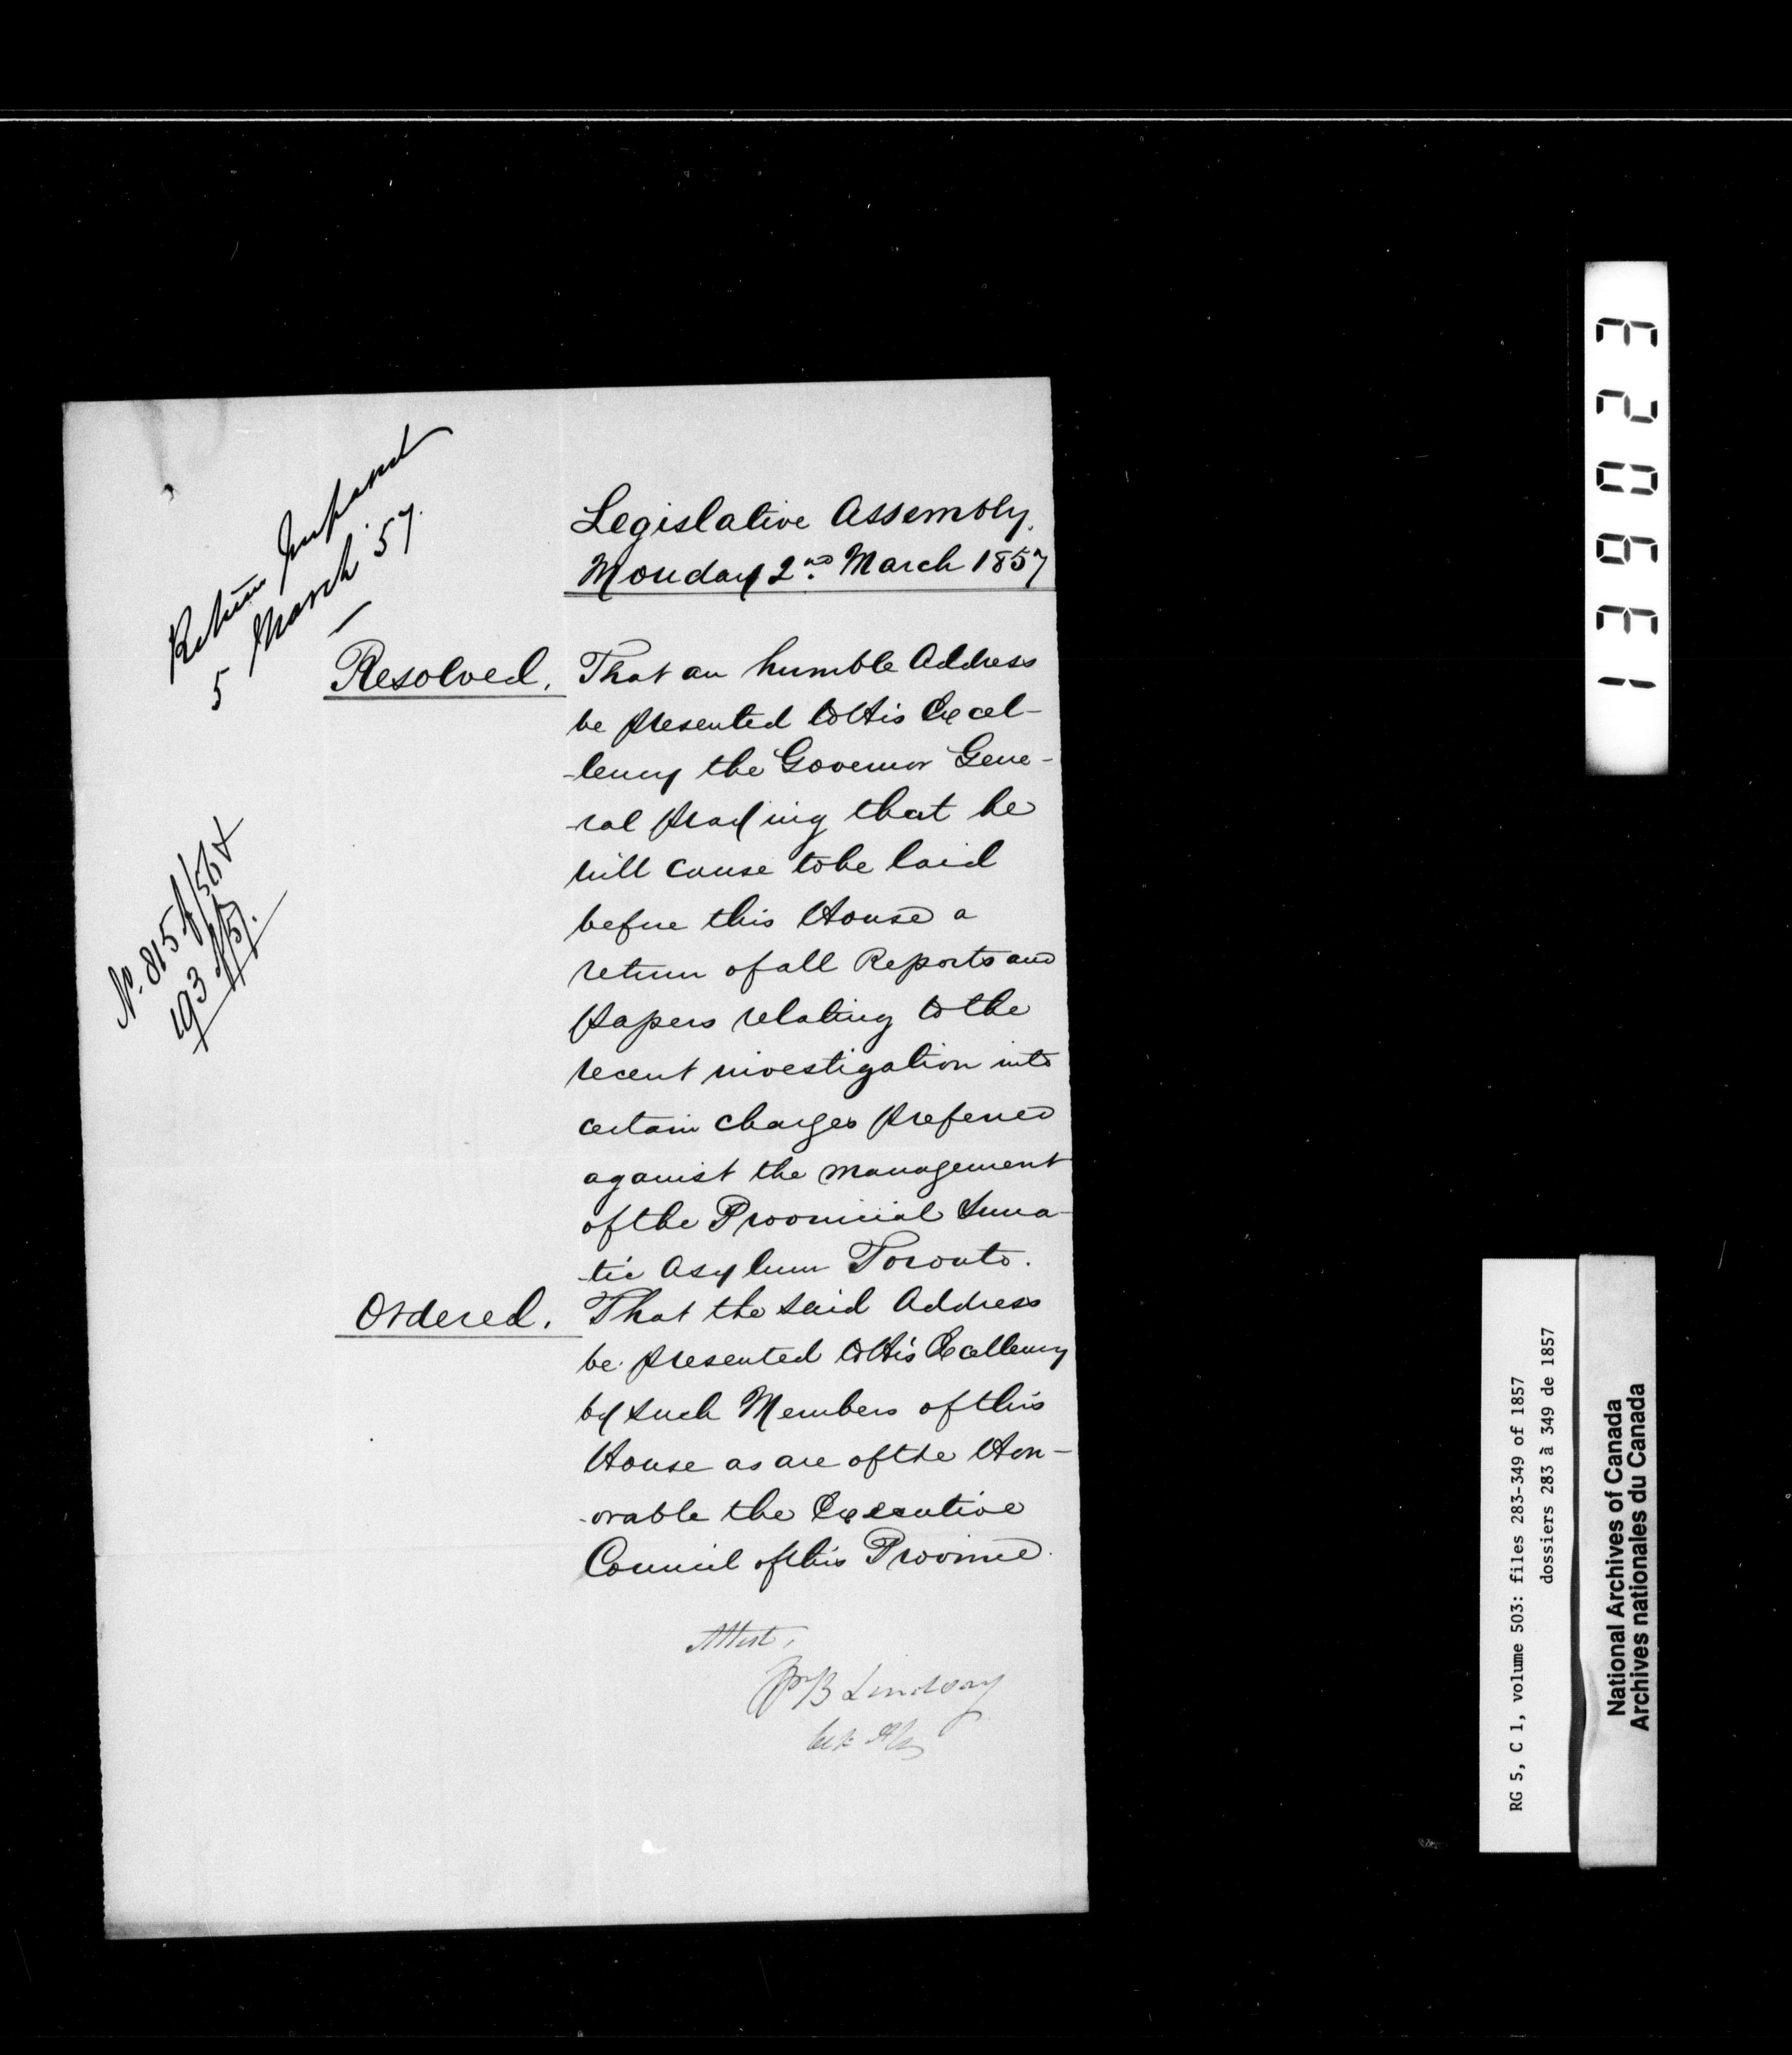 Return
5 March '57.
Legislative Assembly,
Monday 2nd March 1857
Resolved, That an humble Address
be presented to His Excel-
-lency the Governor Gene-
-ral praying that he
will cause to be laid
before this House a
return of all Reports and
papers relating to the
recent investigation into
certain charges preferred
against the management
of the Provincial Luna-
-tic Asylum Toronto.
Ordered. That the said Address
be presented to His Excellency
by such Members of this
House as are of the Hon-
-orable the Executive
Council of this Province.
Attest,
Wm B Lindsay
Clk Assy
No. 815 /56 &
193 /57.
RG 5, C 1, volume 503: files 283-349 of 1857
dossiers 283 à 349 de 1857
National Archives of Canada
Archives nationales du Canada